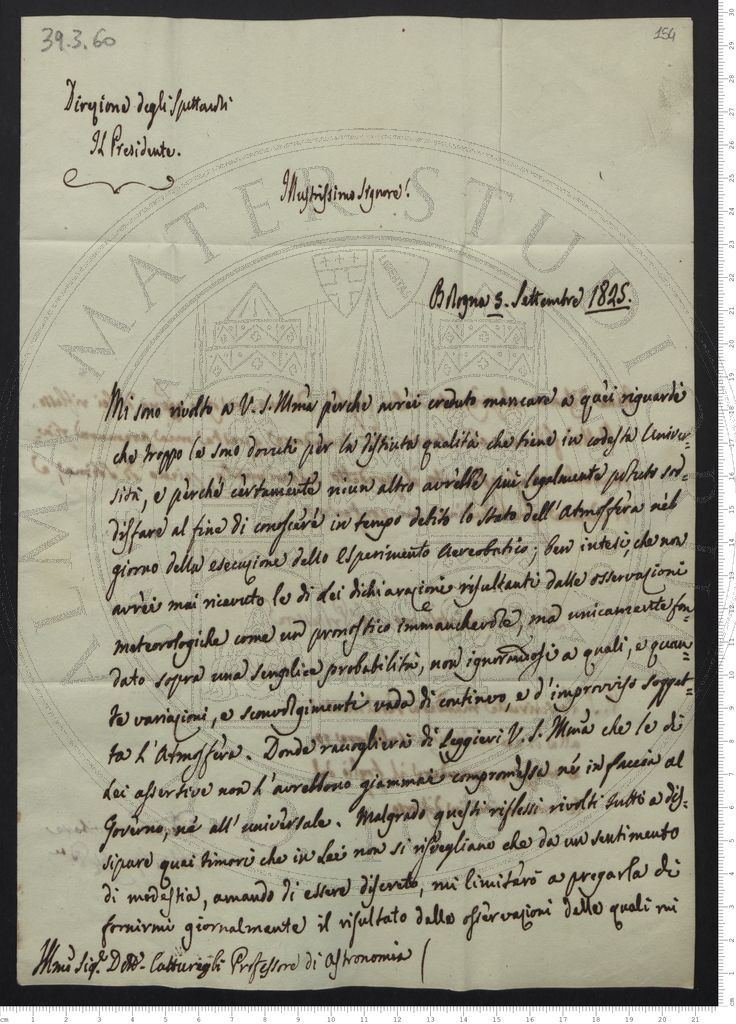 39.3.60
154
Direzione degli Spettacoli
Il Presidente.
Illustrissimo Signore!
Bologna 3. Settembre 1825.
Mi sono rivolto a V. S. Illma perchè avrei creduto mancare a quei riguardi
che troppo le sono dovuti per la distinta qualità che tiene in codesta Univer=
sità, e perchè certamente niun altro avrebbe più legalmente potuto sod=
disfare al fine di conoscere in tempo debito lo stato dell'Atmosfera nel
giorno della esecuzione dello Esperimento Aereobatico; ben intesi, che non
avrei mai ricevuto le di Lei dichiarazioni risultanti dalle osservazioni
meteorologiche come un pronostico immanchevole, ma unicamente fon=
dato sopra una semplice probabilità, non ignorandosi a quali, e quan=
te variazioni, e sconvolgimenti vada di continuo, e d'improvviso sogget=
ta l'Atmosfera. Donde raccoglierà di leggieri V. S. Illma che le di
Lei assertive non l'avrebbono giammai compromesse nè in faccia al
Governo, nè all'universale. Malgrado questi riflessi rivolti tutti a dis=
sipare quei timori che in Lei non si risvegliano che da un sentimento
di modestia, amando di essere discreto, mi limiterò a pregarla di
fornirmi giornalmente il risultato delle osservazioni delle quali mi
Illmo Sigr. Dottr. Caturegli Professore di Astronomia
ALMA MATER STUDIORUM
LIBERTAS
cm 1 2 3 4 5 6 7 8 9 10 11 12 13 14 15 16 17 18 19 20 21